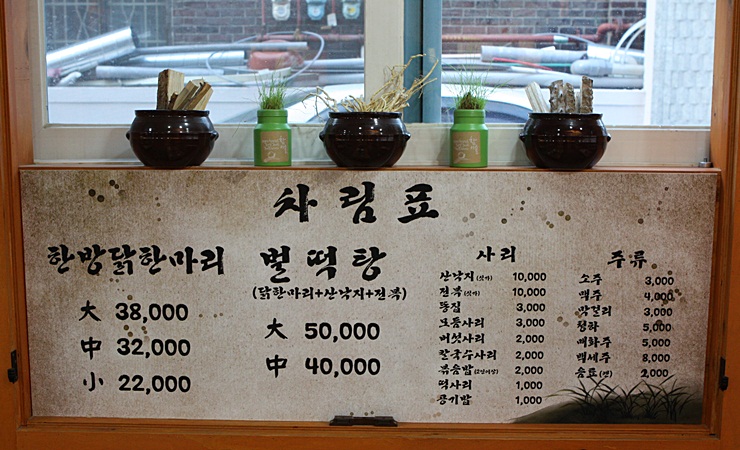 차림표
한방닭한마리
大 38,000
中 32,000
小 22,000
벌떡탕
(닭한마리+산낙지+전복)
大 50,000
中 40,000
사리
산낙지(싯가) 10,000
전복(싯가) 10,000
똥집 3,000
모듬사리 3,000
버섯사리 2,000
칼국수사리 2,000
볶음밥(2인이상) 2,000
떡사리 1,000
공기밥 1,000
주류
소주 3,000
맥주 4,000
막걸리 3,000
청하 5,000
매화주 5,000
백세주 8,000
음료(캔) 2,000